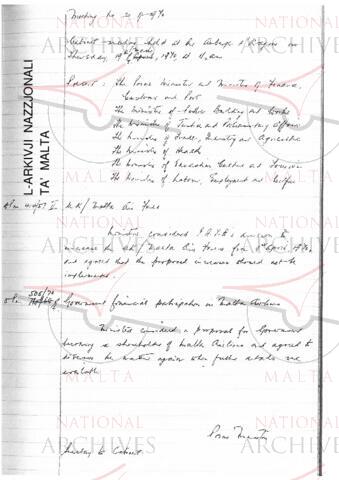 Meeting no 20 of 70
Cabinet meeting held at the Auberge d'Aragon on
Thursday, 19th March, 1970, at
Present : The Prime Minister and Minister of Finance,
Customs and Port
The Minister of Public Building and Works
The Minister of Justice and Parliamentary Affairs
The Minister of Trade, Industry and Agriculture
The Minister of Health
The Minister of Education Culture and Tourism
The Minister of Labour, Employment and Welfare
UK / Malta Air Fares
Ministers considered decision to
increase the UK / Malta Air Fares from 1st April, 1970
and agreed that the proposed increases should not be
implemented.
505/70
Government financial participation in Malta Airlines
Ministers considered a proposal for Government
becoming a shareholder of Malta Airlines and agreed to
discuss the matter again when further details are
available.
Prime Minister
Secretary to Cabinet
L-ARKIVJI NAZZJONALI
TA' MALTA
NATIONAL
ARCHIVES
MALTA
NATIONAL
ARCHIVES
MALTA
NATIONAL
ARCHIVES
MALTA
NATIONAL
ARCHIVES
MALTA
NATIONAL
ARCHIVES
NATIONAL
ARCHIVES